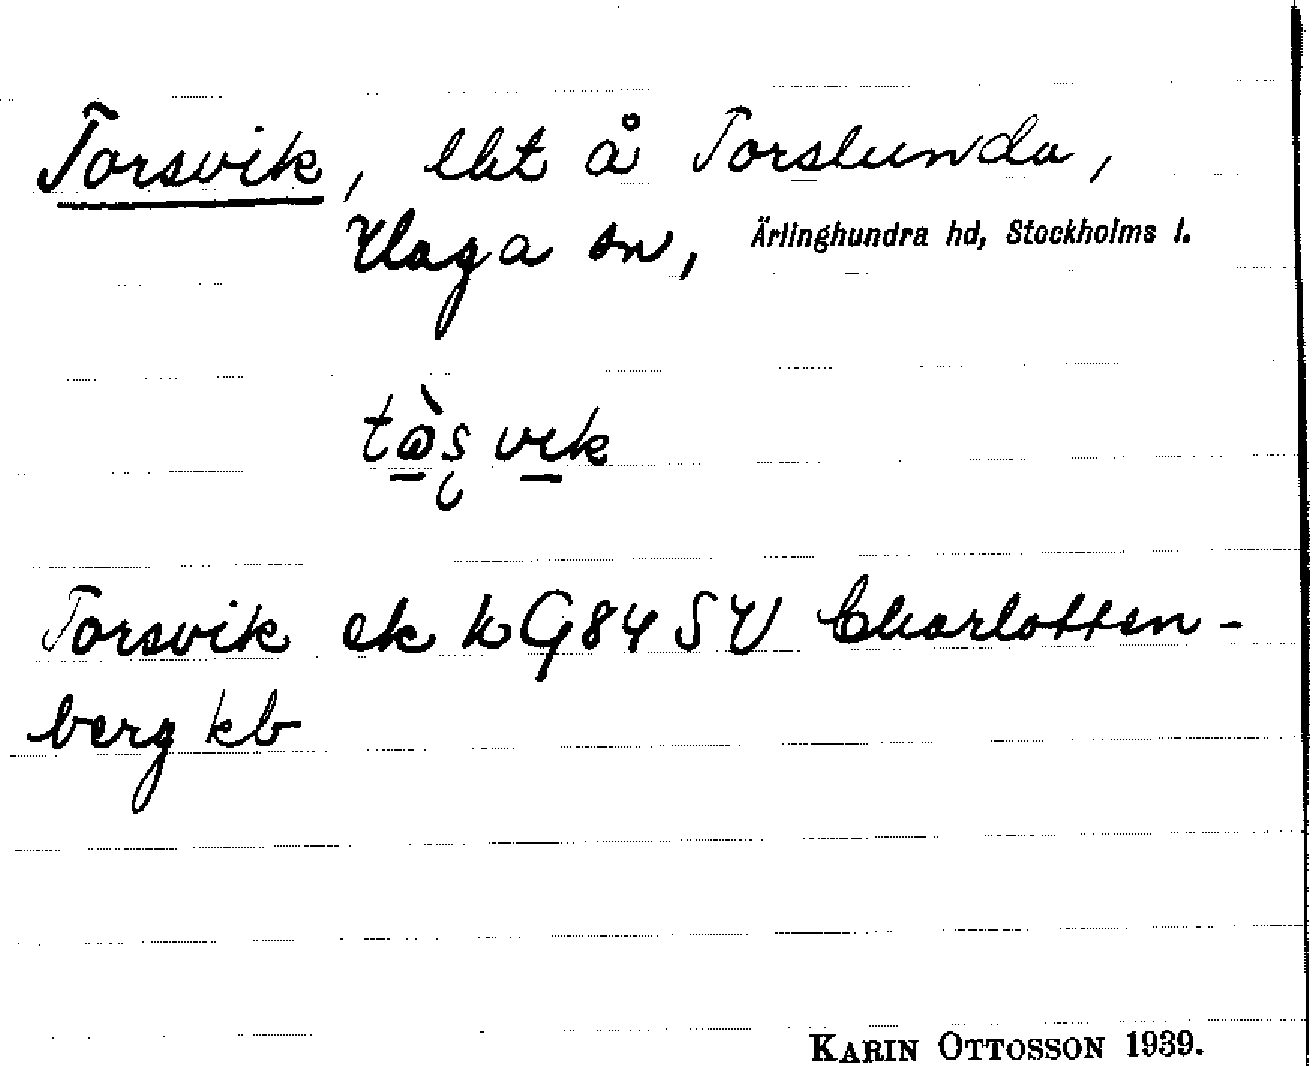 Torsvik, lht å Torslunda,
Haga sn, Ärlinghundra hd, Stockholms l.
vik
Torsvik ek kG84SV Charlotten-
berg kb
KARIN OTTOSSON 1939.